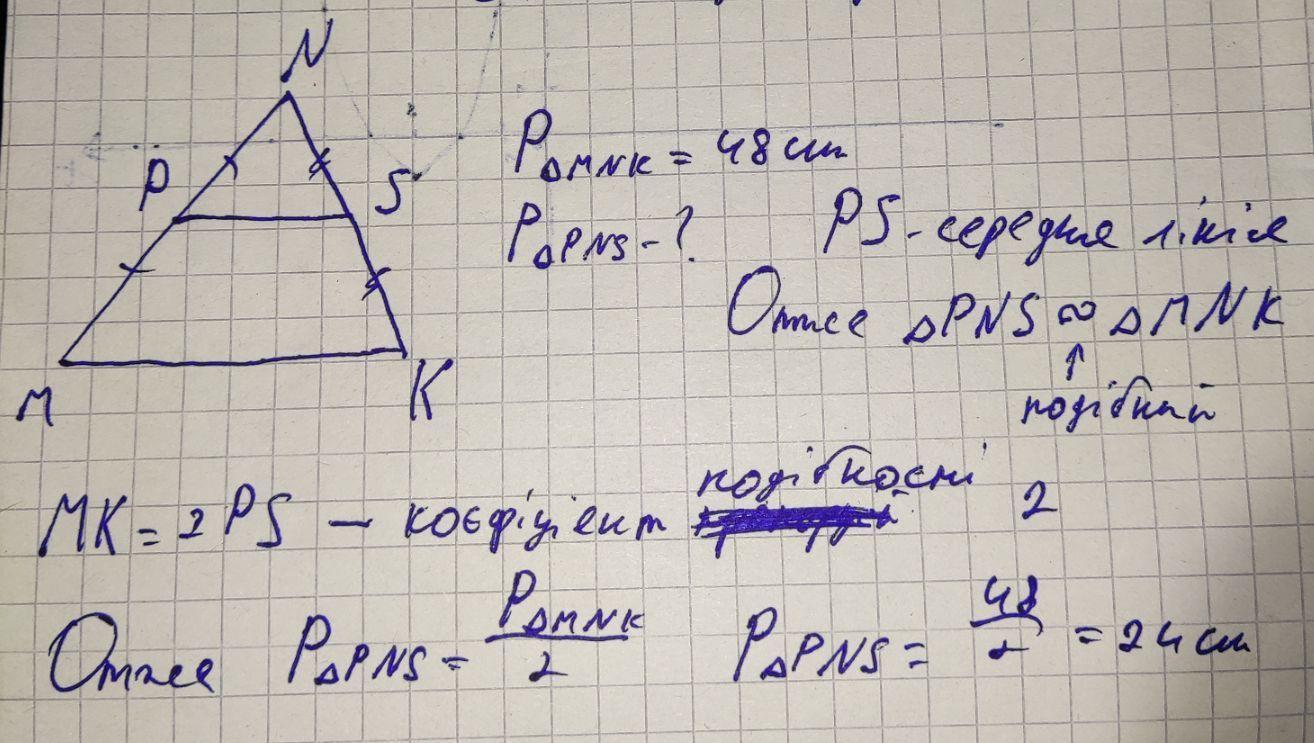 N
P
S
M
K
P△MNK = 48 cm
P△PNS - ?
PS - середня лінія
Отже △PNS ∾ △MNK
↑
подібний
MK = 2 PS — коєфіцієнт подібності 2
Отже P△PNS = P△MNK / 2 P△PNS = 48 / 2 = 24 cm